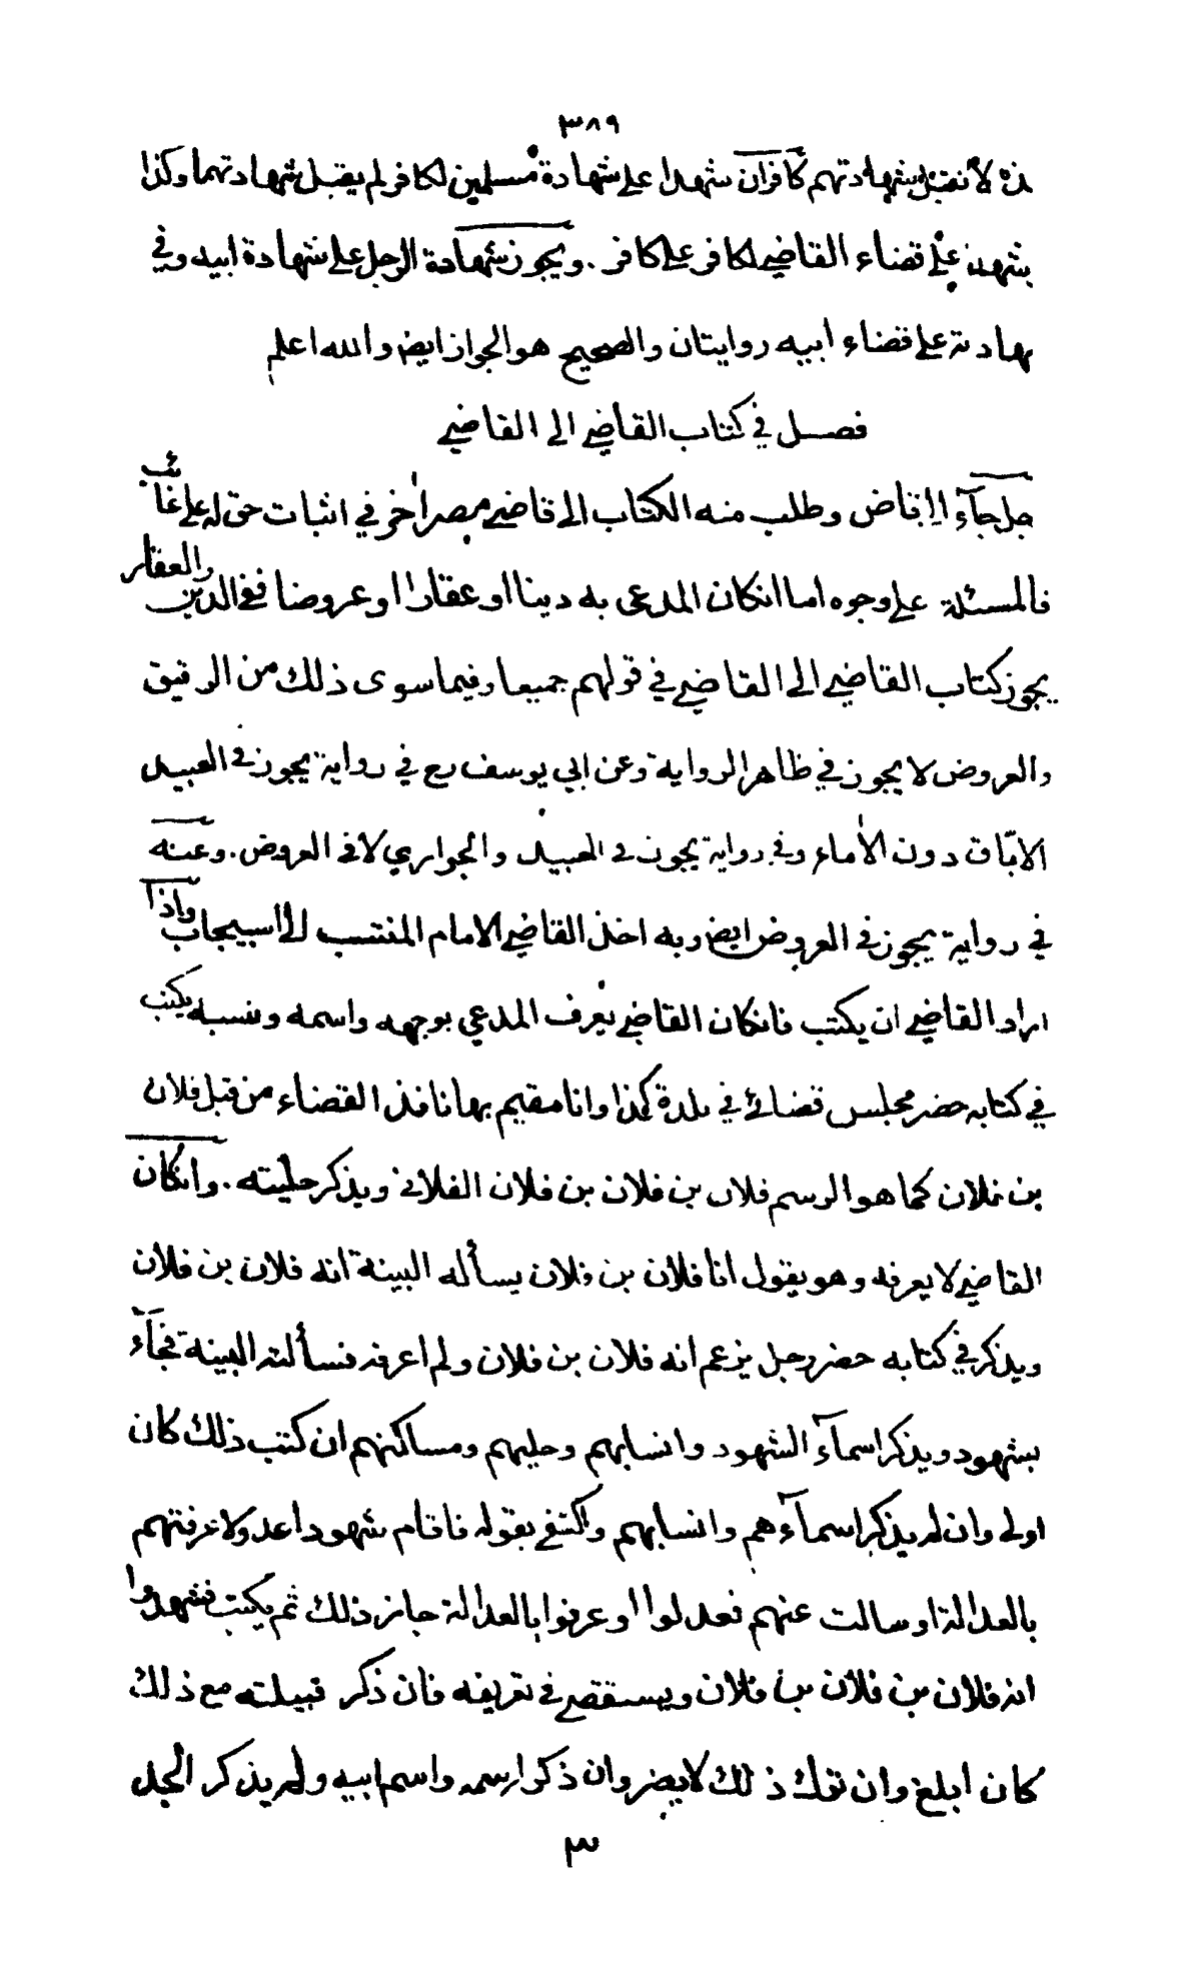 ٣٨٩
هذه لا تقبل شهادتهم كافران شهدا على شهادة مسلمين لكافر لم يقبل شهادتهما وكذا
يشهدن على قضاء القاضي لكافر على كافر . ويجوز شهادة الرجل على شهادة ابيه وفي
هادته على قضاء ابيه روايتان والصحيح هو الجواز ايض والله اعلم
فصل في كتاب القاضي الى القاضي
جل جآء الى قاض وطلب منه الكتاب الى قاضي مصر اخر في اثبات حق له على غائب
فالمسئلة على وجوه اما انكان المدعى به دينا او عقارا او عروضا ففي الدين والعقار
يجوز كتاب القاضي الى القاضي في قولهم جميعا وفيما سوى ذلك من الرقيق
والعروض لا يجوز في ظاهر الرواية وعن ابي يوسف رع في رواية يجوز في العبيد
الاباق دون الاماء وفي رواية يجوز في العبيد والجواري لا في العروض . وعنه
في رواية يجوز في العروض ايض وبه اخذ القاضي الامام المنتسب الى اسبيجاب واذا
اراد القاضي ان يكتب فانكان القاضي يعرف المدعي بوجهه واسمه ونسبه يكتب
في كتابه حضر مجلس قضائي في بلدة كذا وانا مقيم بها نافذ القضاء من قبل فلان
بن فلان كما هو الرسم فلان بن فلان بن فلان الفلاني ويذكر حليته . وانكان
القاضي لا يعرفه وهو يقول انا فلان بن فلان يسأله البينة انه فلان بن فلان
ويذكر في كتابه حضر رجل يزعم انه فلان بن فلان ولم اعرفه فسألته البينة فجآء
بشهود ويذكر اسمآء الشهود وانسابهم وحليهم ومساكنهم ان كتب ذلك كان
اولى وان لم يذكر اسمآءهم وانسابهم واكتفى بقوله فاقام شهودا عدولا عرفتهم
بالعدالة او سالت عنهم فعدلوا او عرفوا بالعدالة جاز ذلك ثم يكتب فشهدوا
انه فلان بن فلان بن فلان ويستقصي في تعريفه فان ذكر قبيلته مع ذلك
كان ابلغ وان ترك ذلك لا يضر وان ذكر اسمه واسم ابيه ولم يذكر الجد
٣